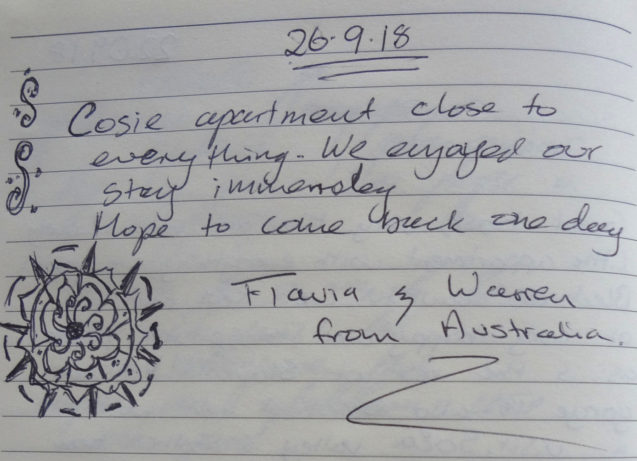 26.9.18
Cosie apartment close to
everything. We enjoyed our
stay immensley
Hope to come back one day
Flavia & Warren
from Australia.